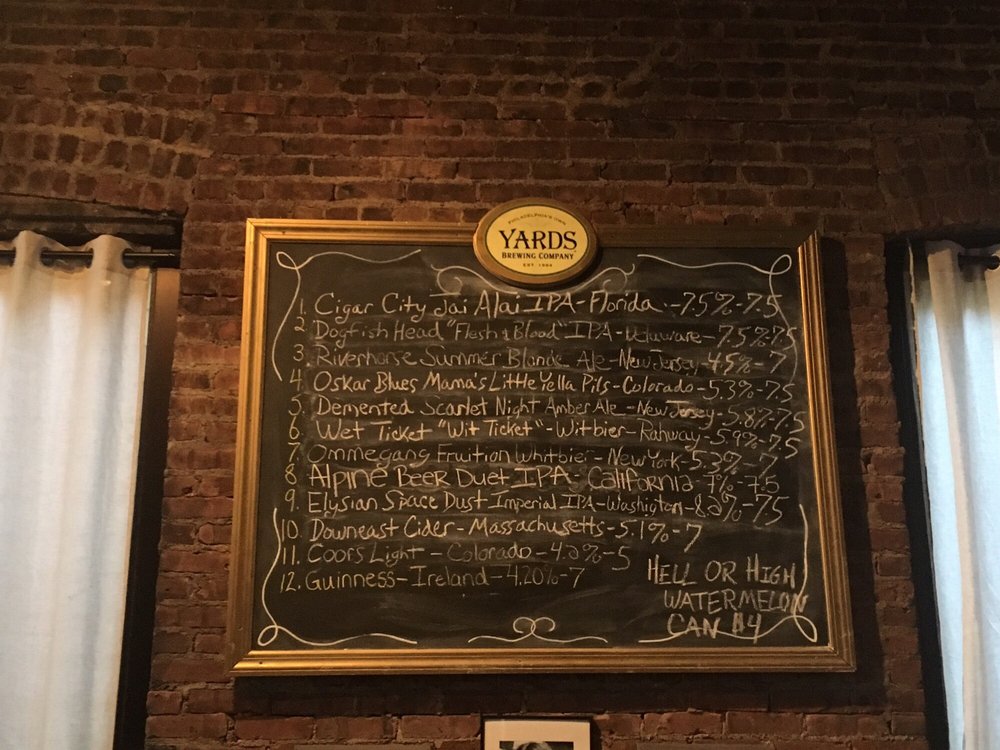 PHILADELPHIA'S OWN
YARDS
BREWING COMPANY
EST. 1994
1. Cigar City Jai Alai IPA-Florida -7.5%-7.5
2. Dogfish Head "Flesh & Blood" IPA-Delaware-7.5%-7.5
3. Riverhorse Summer Blonde Ale-New Jersey-4.5%-7
4. Oskar Blues Mama's Little Yella Pils-Colorado-5.3%-7.5
5. Demented Scarlet Night Amber Ale-New Jersey-5.8%-7.5
6. Wet Ticket "Wit Ticket"-Witbier-Rahway-5.9%-7.5
7. Ommegang Fruition Whitbier-New York-5.3%-7
8. Alpine Beer Duet IPA-California-7%-7.5
9. Elysian Space Dust Imperial IPA-Washigton-8.2%-7.5
10. Downeast Cider-Massachusetts-5.1%-7
11. Coors Light-Colorado-4.2%-5
12. Guinness-Ireland-4.20%-7
HELL OR HIGH
WATERMELON
CAN $4